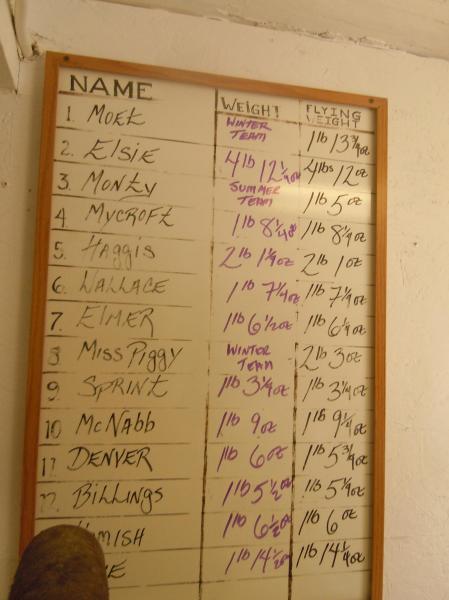 NAME WEIGHT FLYING WEIGHT
1. MOET WINTER TEAM 1lb 13 3/4 oz
2. ELSIE 4lb 12 1/4 oz 4lbs 12oz
3. MONTY SUMMER TEAM 1lb 5oz
4. MYCROFT 1lb 8 1/4 oz 1lb 8 1/4 oz
5. HAGGIS 2lb 1 1/4 oz 2lb 1oz
6. WALLACE 1lb 7 1/4 oz 1lb 7 1/4 oz
7. ELMER 1lb 6 1/2 oz 1lb 6 1/4 oz
8 MISS PIGGY WINTER TEAM 2lb 3oz
9. SPRINT 1lb 3 1/4 oz 1lb 3 1/4 oz
10 McNABB 1lb 9oz 1lb 9 1/4 oz
11 DENVER 1lb 6oz 1lb 5 3/4 oz
12 BILLINGS 1lb 5 1/2 oz 1lb 5 1/4 oz
HAMISH 1lb 6 1/2 oz 1lb 6oz
1lb 14 1/2 oz 1lb 14 1/4 oz